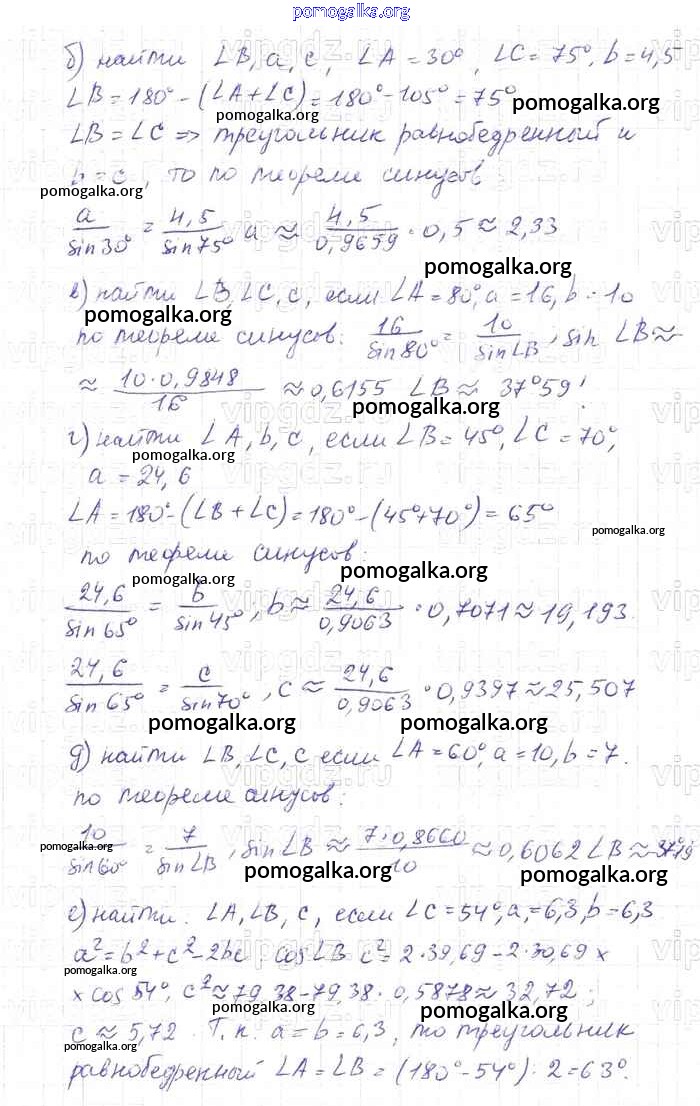 pomogalka.org
б) найти ∠B, a, c, ∠A = 30°, ∠C = 75°, b = 4,5
∠B = 180° - (∠A + ∠C) = 180° - 105° = 75°
pomogalka.org
pomogalka.org
∠B = ∠C => треугольник равнобедренный и
b = c, то по теореме синусов
pomogalka.org
a/sin30° = 4,5/sin75° a ≈ 4,5/0,9659 · 0,5 ≈ 2,33
pomogalka.org
в) найти ∠B, ∠C, c, если ∠A = 80°, a = 16, b = 10
pomogalka.org
по теореме синусов: 16/sin80° = 10/sin∠B, sin ∠B ≈
≈ 10·0,9848/16 ≈ 0,6155 ∠B ≈ 37°59'
pomogalka.org
г) найти ∠A, b, c, если ∠B = 45°, ∠C = 70°,
pomogalka.org
a = 24,6
∠A = 180° - (∠B + ∠C) = 180° - (45°+70°) = 65°
pomogalka.org
по теореме синусов:
pomogalka.org
pomogalka.org
24,6/sin65° = b/sin45°, b ≈ 24,6/0,9063 · 0,7071 ≈ 19,193.
24,6/sin65° = c/sin70°, c ≈ 24,6/0,9063 · 0,9397 ≈ 25,507
pomogalka.org
pomogalka.org
д) найти ∠B, ∠C, c если ∠A = 60°, a = 10, b = 7.
по теореме синусов:
10/sin60° = 7/sin∠B, sin∠B ≈ 7·0,8660/10 ≈ 0,6062 ∠B ≈ 37°19'
pomogalka.org
pomogalka.org
pomogalka.org
е) найти: ∠A, ∠B, c, если ∠C = 54°, a = 6,3, b = 6,3
a² = b² + c² - 2bc · cos∠B c² = 2·39,69 - 2·30,69 x
pomogalka.org
x cos 54°, c² ≈ 79,38 - 79,38 · 0,5878 ≈ 32,72;
pomogalka.org
pomogalka.org
c ≈ 5,72. Т.к. a = b = 6,3, то треугольник
pomogalka.org
равнобедренный ∠A = ∠B = (180° - 54°) : 2 = 63°.